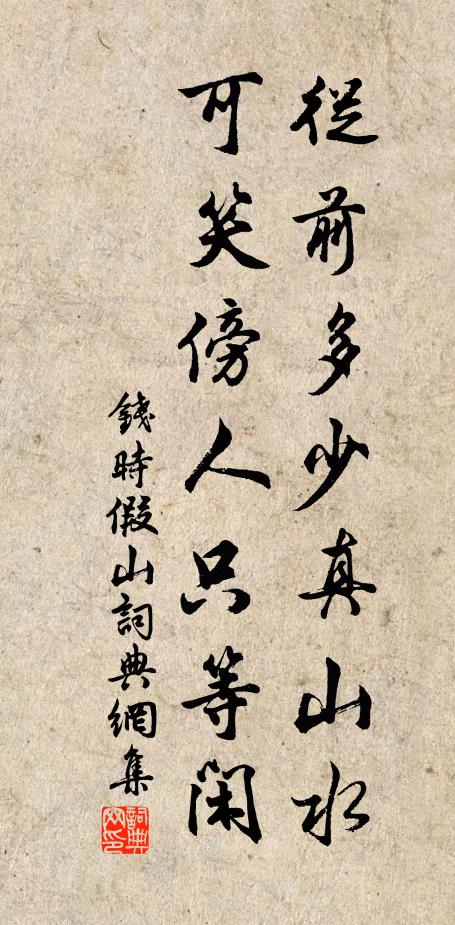 從前多少真山水
可笑傍人只等閑
錢時假山詞典網集
詞典网印